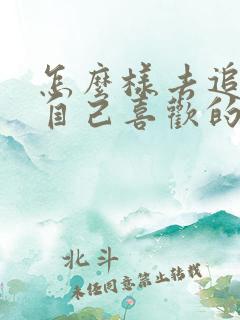 怎麼樣去追
自己喜歡的
北斗
未经同意禁止转载